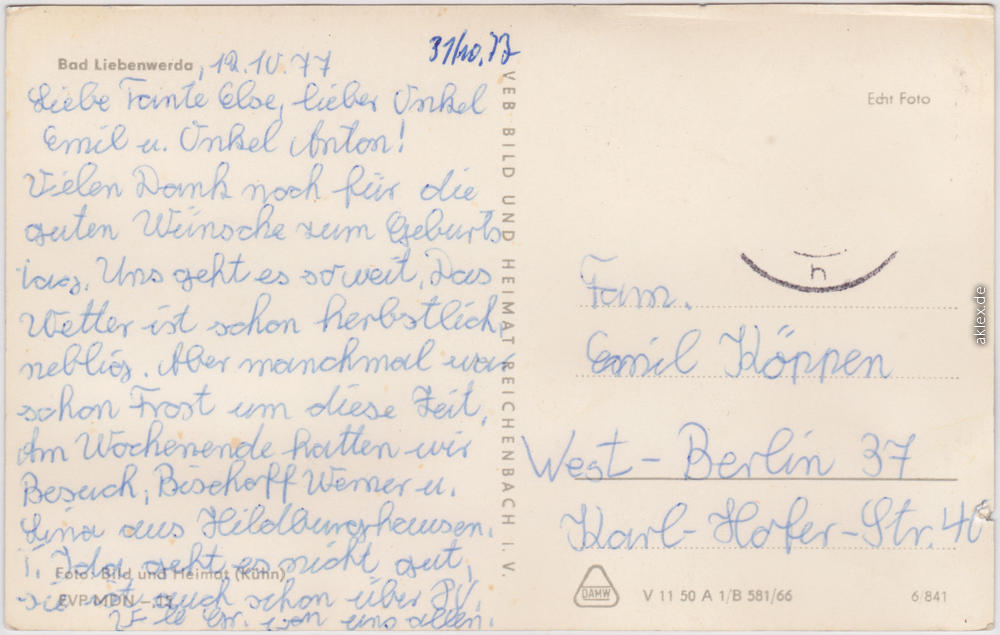 Bad Liebenwerda, 12.10.77
31/10.77
Liebe Tante Else, lieber Onkel
Emil u. Onkel Anton!
Vielen Dank noch für die
guten Wünsche zum Geburts
tag. Uns geht es soweit. Das
Wetter ist schon herbstlich,
neblig. Aber manchmal war
schon Frost um diese Zeit.
Am Wochenende hatten wir
Besuch, Bischoff Werner u.
Lina aus Hildburghausen.
T. Ida geht es nicht gut,
Foto: Bild und Heimat (Kühn)
sie ist auch schon über
EVP MDN
Gr. von uns allen.
VEB BILD UND HEIMAT REICHENBACH I. V.
Echt Foto
h
Fam.
Emil Köppen
West-Berlin 37
Karl-Hofer-Str. 46
DAMW
V 11 50 A 1/B 581/66
6/841
aklex.de